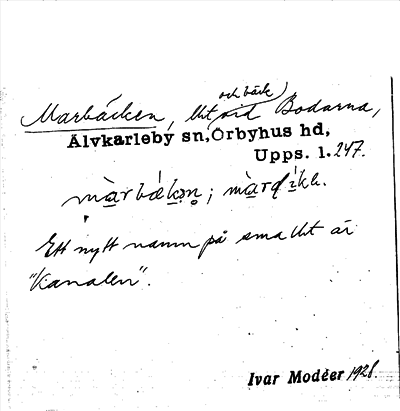 och bäck
Marbäcken, tkt vid Bodarna,
Älvkarleby sn, Örbyhus hd,
Upps. l. 247.
Ett nytt namn på sma tkt är
"Kanalen".
Ivar Modéer 1928.